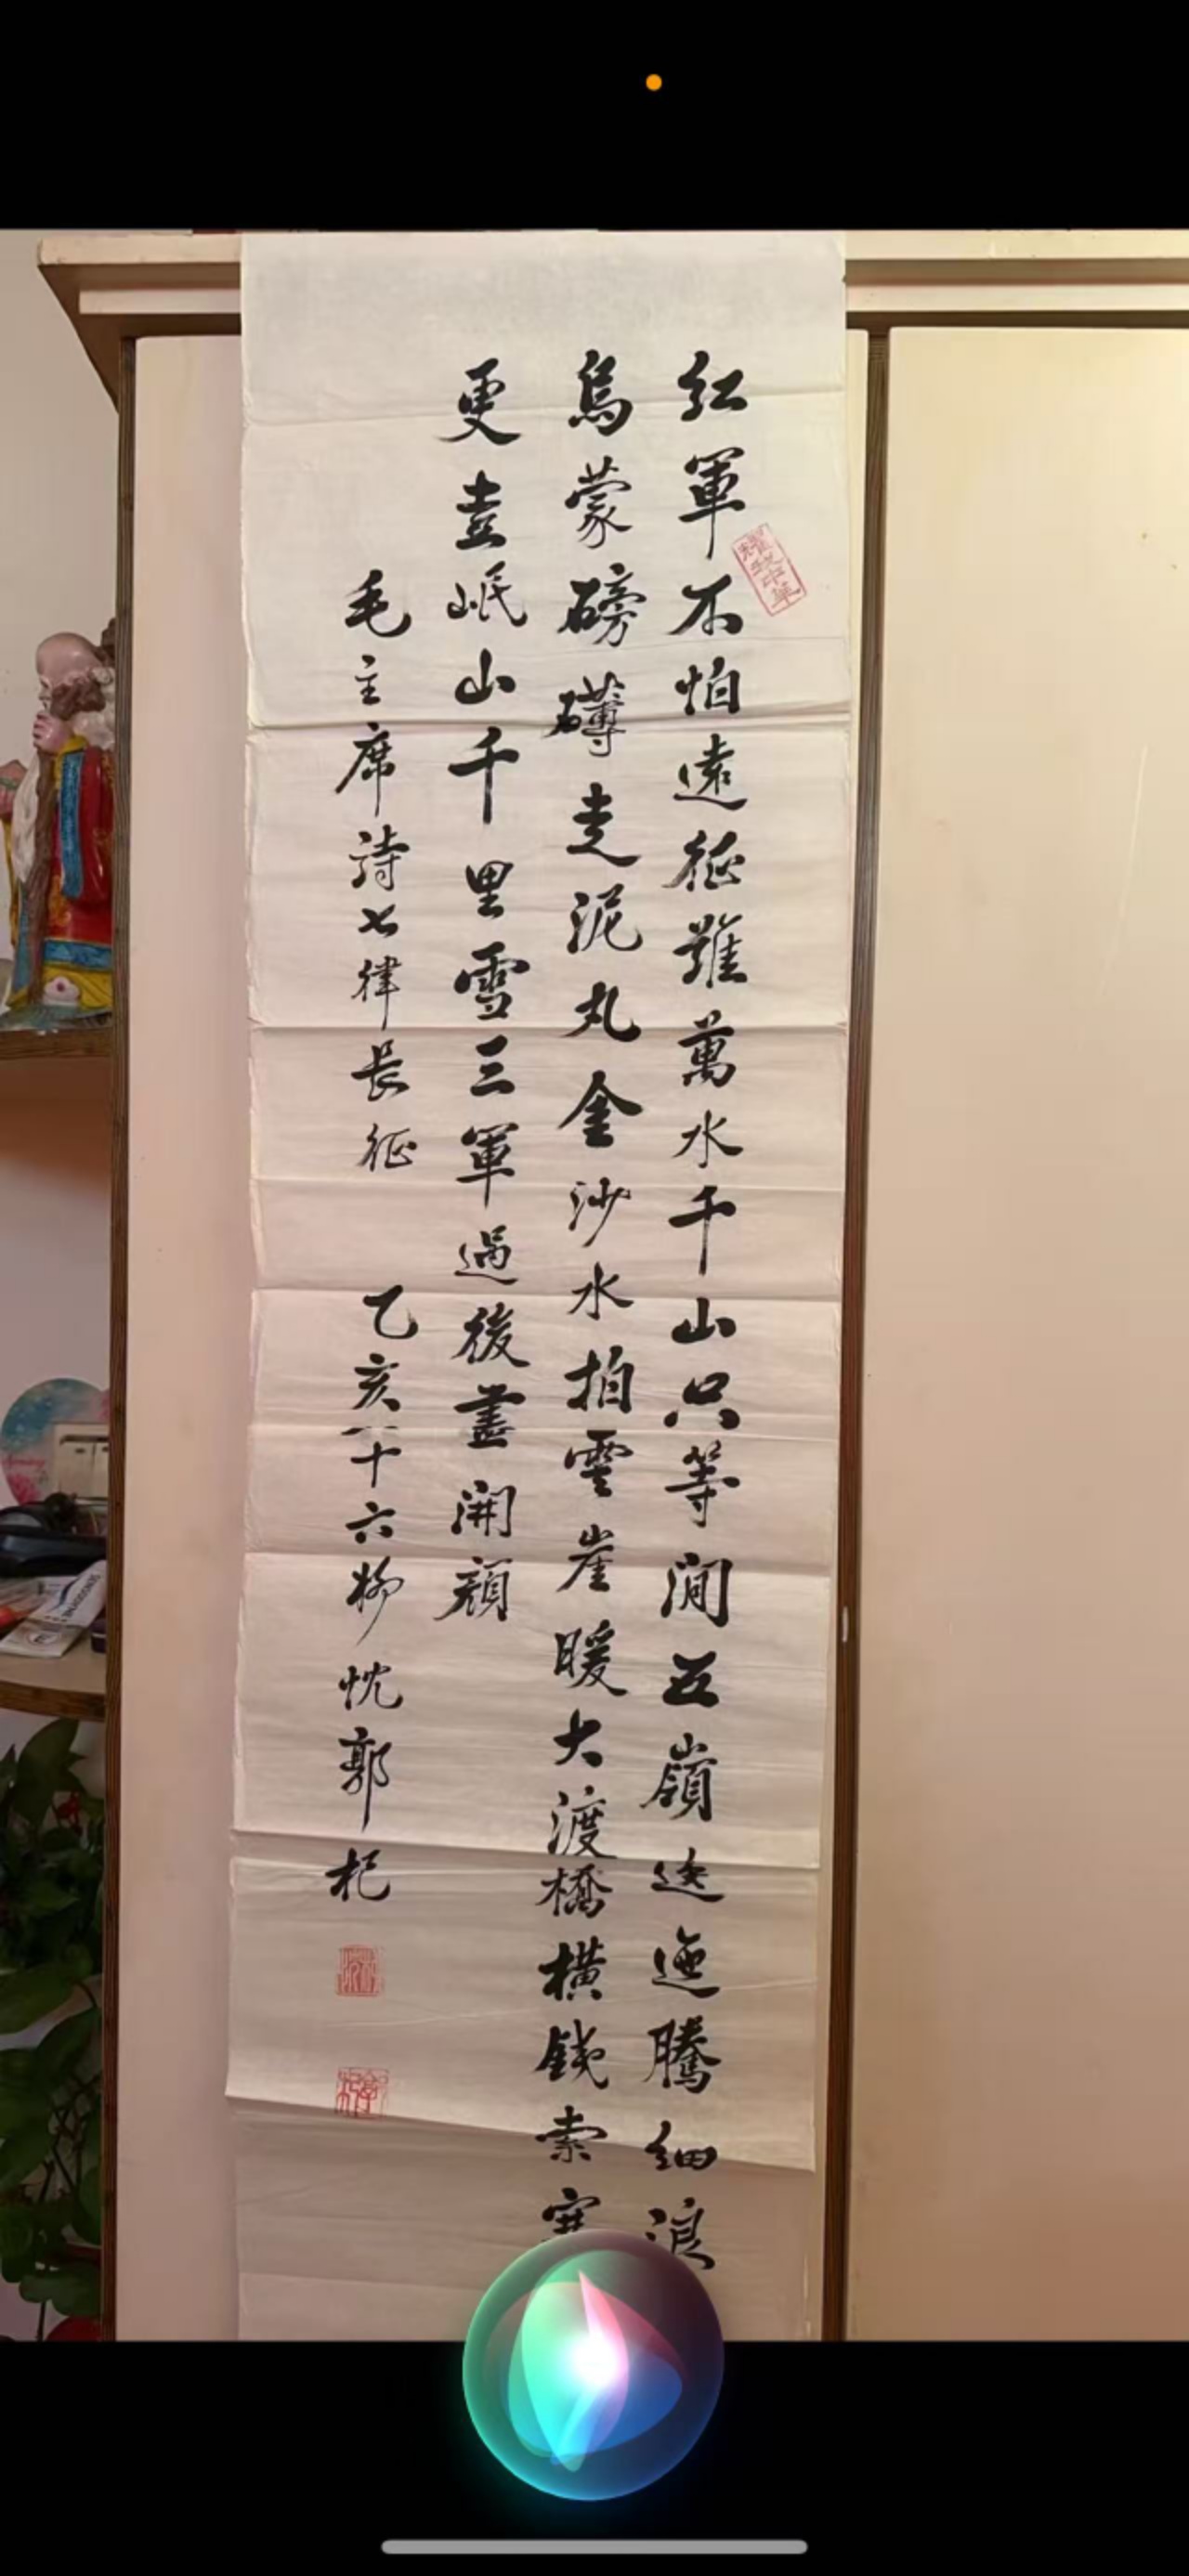 紅軍不怕遠征難萬水千山只等閒五嶺逶迤騰細浪
烏蒙磅礴走泥丸金沙水拍雲崖暖大渡橋橫鐵索寒
更喜岷山千里雪三軍過後盡開顏
毛主席詩七律長征 乙亥八十六柳忱郭杞
耀我中華